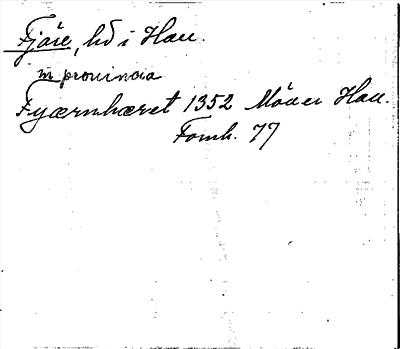 Fjäre, hd i Hall.
in provincia
Fyærnhæret 1352 Möller Hall.
Fornh. 77